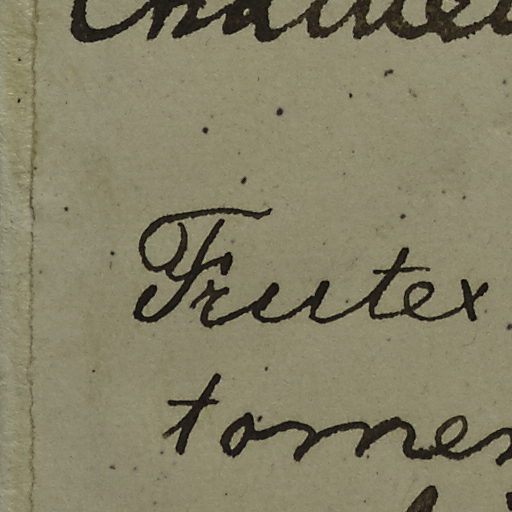 Frutex
tomen